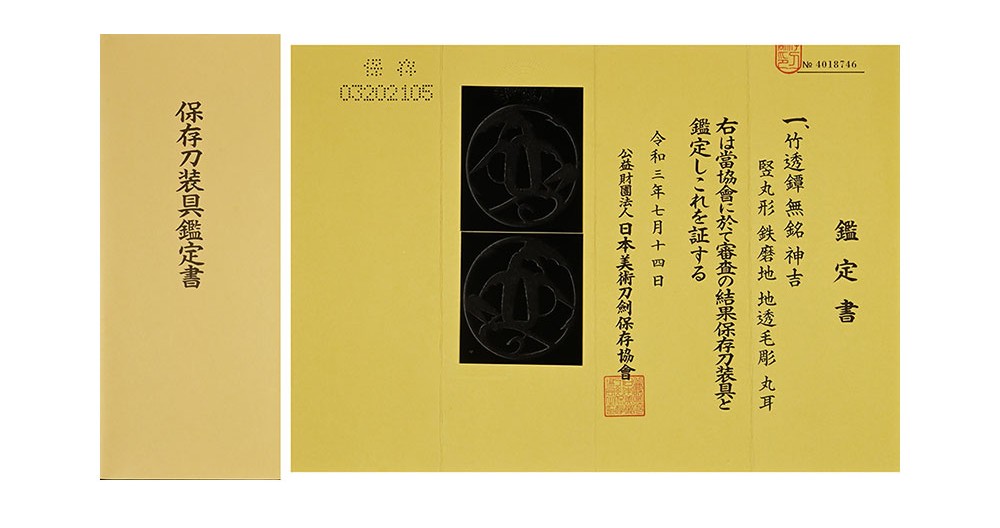 保存刀装具鑑定書
保存
03202105
№ 4018746
鑑定書
一、竹透鐔 無銘 神吉
竪丸形 鉄磨地 地透毛彫 丸耳
右は當協會に於て審査の結果保存刀装具と
鑑定しこれを証する
令和三年七月十四日
公益財團法人 日本美術刀劍保存協會